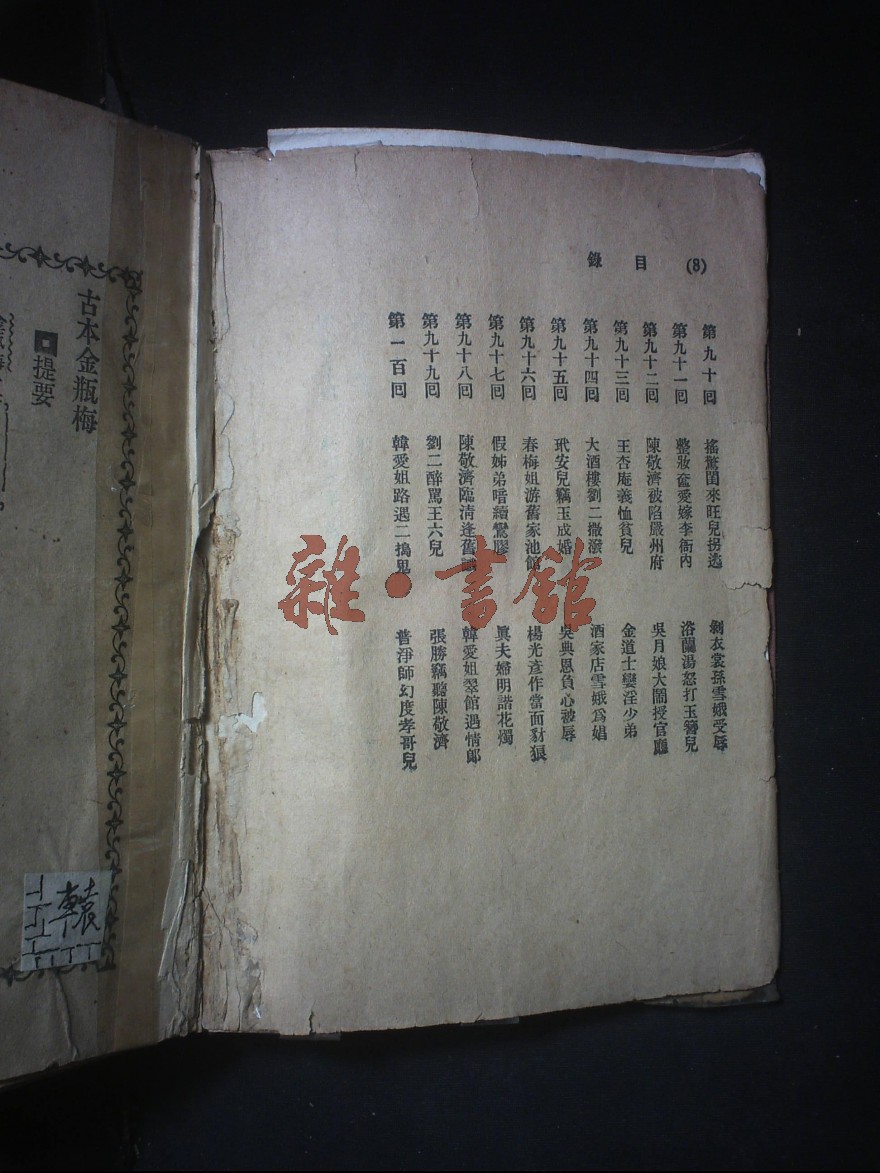 (8) 目錄
第九十回 搖驚閨來旺兒拐逃 剝衣裳孫雪娥受辱
第九十一回 整妝奩愛嫁李衙內 浴蘭湯怒打玉簪兒
第九十二回 陳敬濟被陷嚴州府 吳月娘大鬧授官廳
第九十三回 王杏庵義恤貧兒 金道士孌淫少弟
第九十四回 大酒樓劉二撒潑 酒家店雪娥爲娼
第九十五回 玳安兒竊玉成婚 吳典恩負心被辱
第九十六回 春梅姐游舊家池館 楊光彥作當面豺狼
第九十七回 假姊弟暗續鸞膠 眞夫婦明諧花燭
第九十八回 陳敬濟臨清逢舊識 韓愛姐翠館遇情郎
第九十九回 劉二醉駡王六兒 張勝竊聽陳敬濟
第一百回 韓愛姐路遇二搗鬼 普淨師幻度孝哥兒
古本金瓶梅
提要
雜·書館
轅